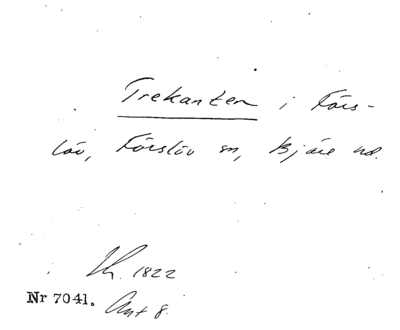 Trekanten i Förs-
löv, Förslöv sn, Bjäre hd.
Lh. 1822
Nr 7041. Ant 8.